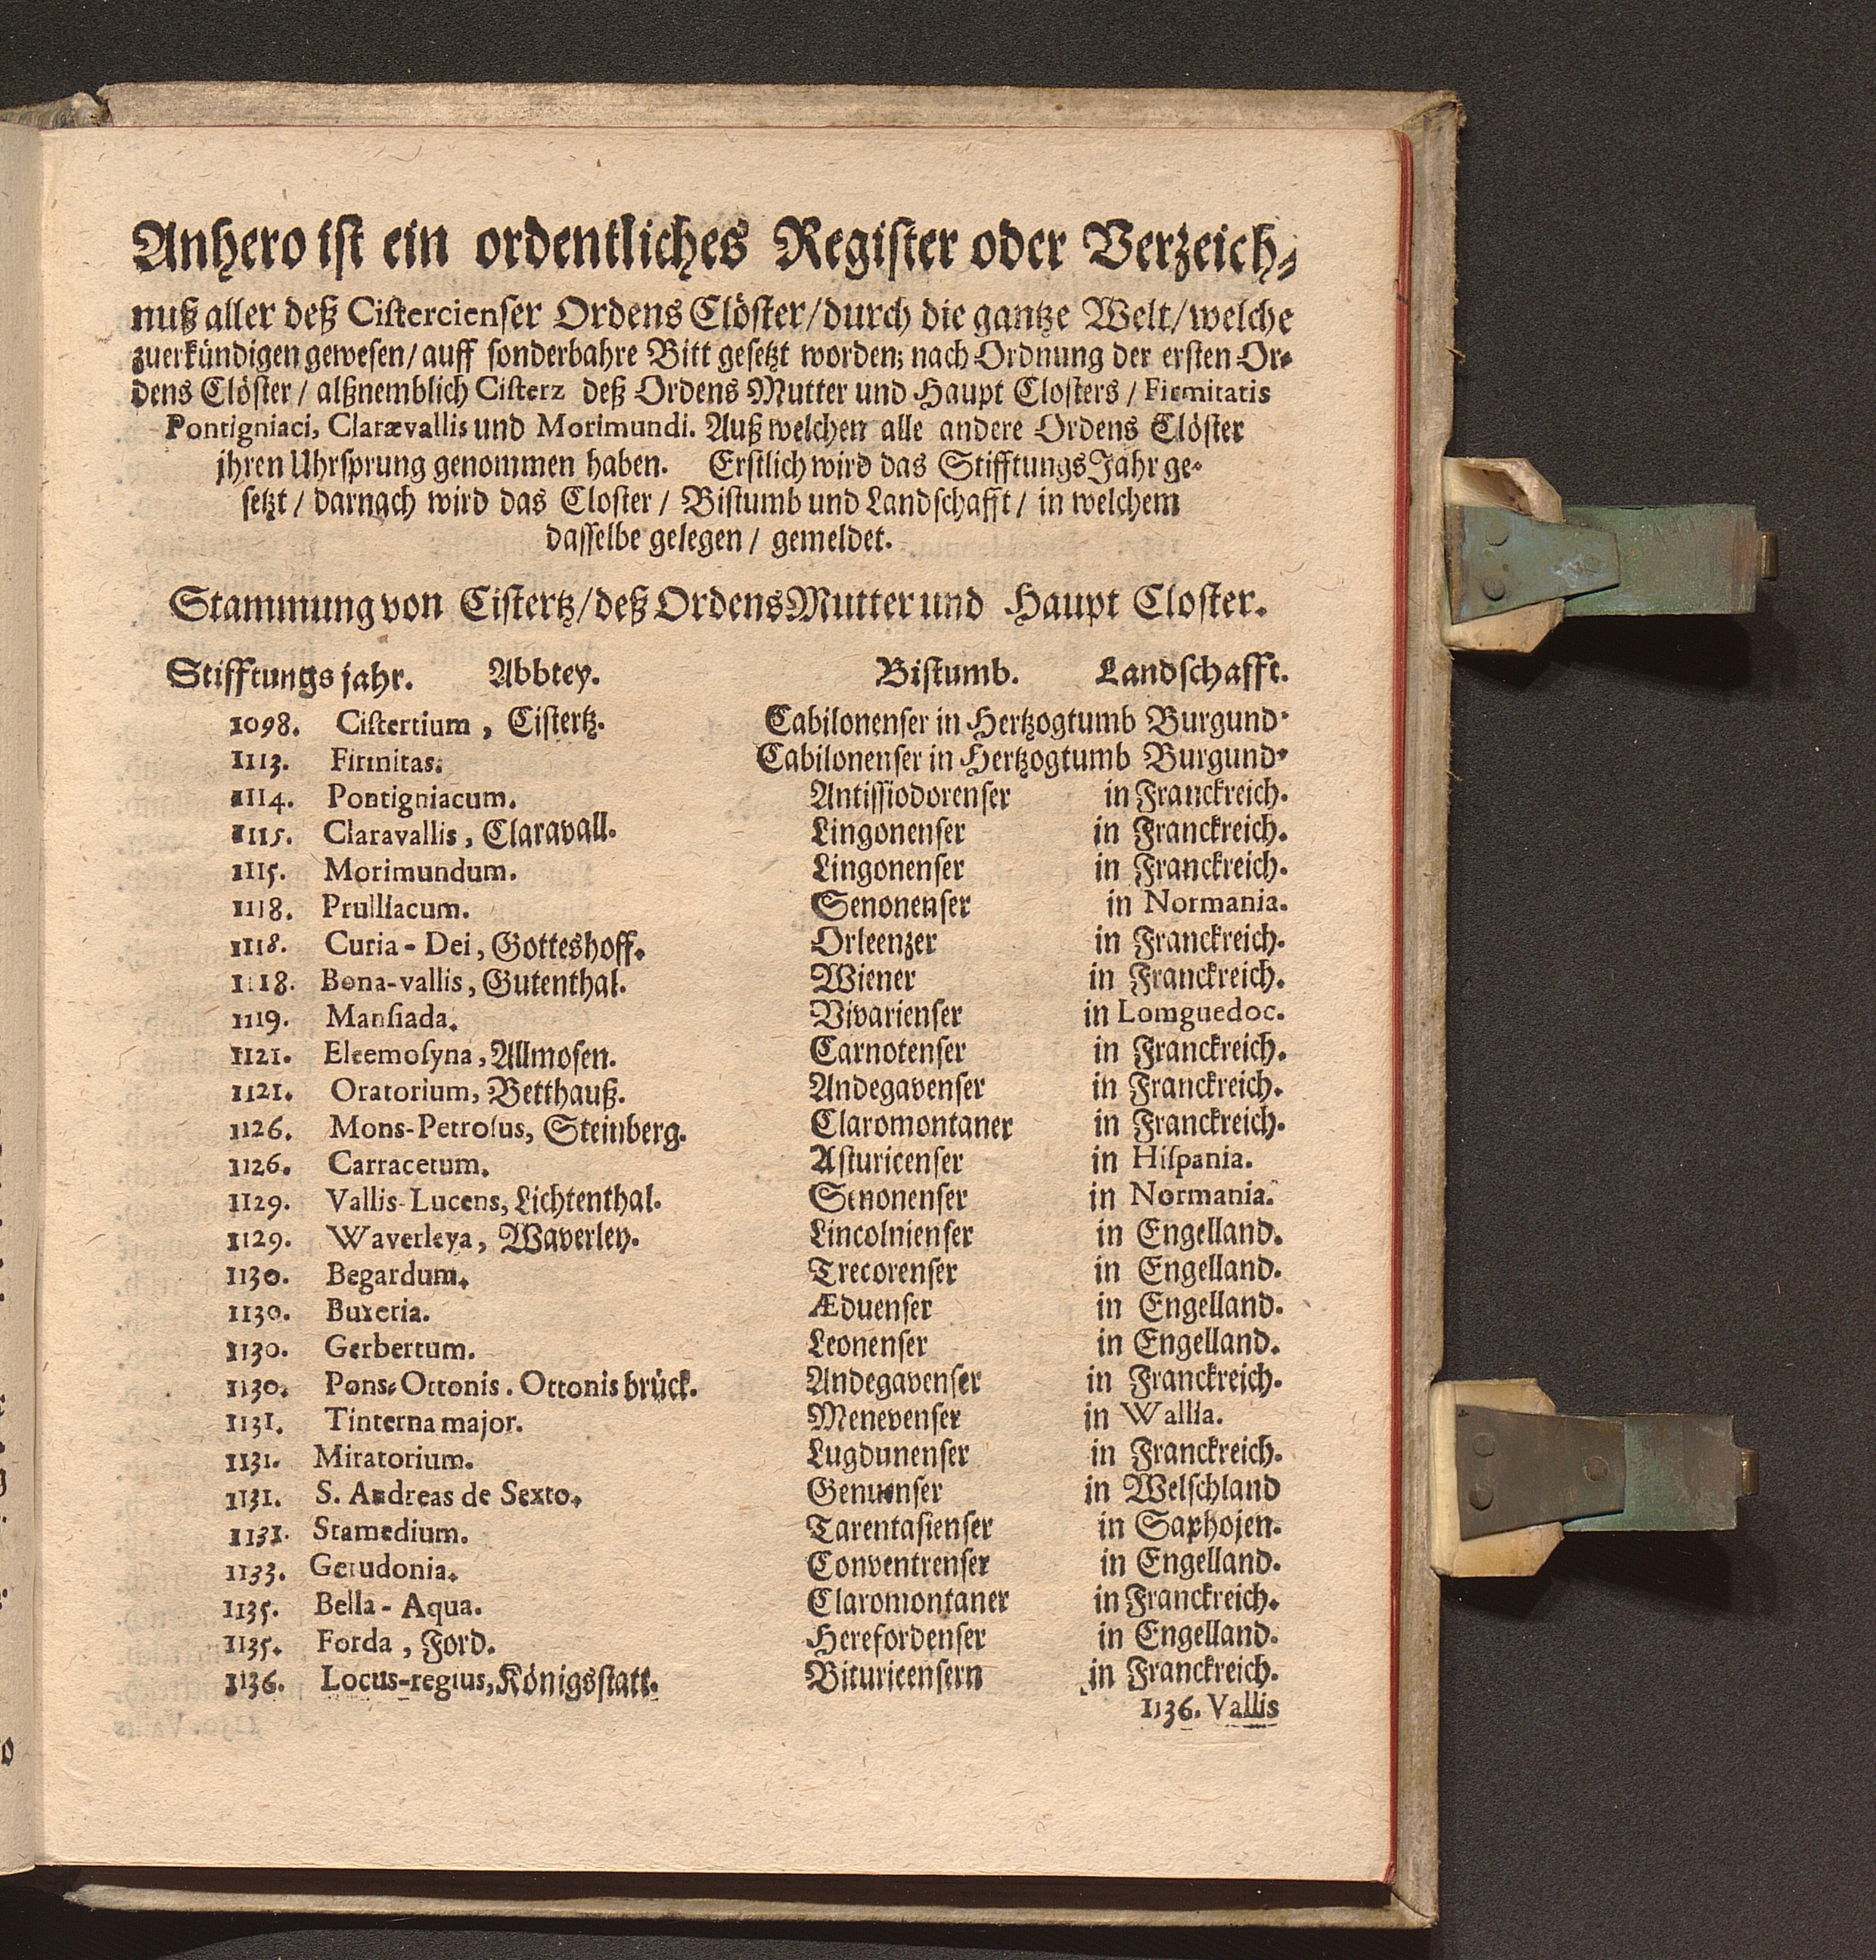 Anhero ist ein ordentliches Register oder Verzeich-
nuß aller deß Cistercienser Ordens Clöster/durch die gantze Welt/welche
zuerkündigen gewesen/auff sonderbahre Bitt gesetzt worden; nach Ordnung der ersten Or-
dens Clöster / alßnemblich Cisterz deß Ordens Mutter und Haupt Closters / Firmitatis
Pontigniaci, Clarævallis und Morimundi. Auß welchen alle andere Ordens Clöster
jhren Uhrsprung genommen haben. Erstlich wird das Stifftungs Jahr ge-
setzt / darnach wird das Closter / Bistumb und Landschafft / in welchem
dasselbe gelegen / gemeldet.
Stammung von Cistertz/deß Ordens Mutter und Haupt Closter.
Stifftungs jahr. Abbtey. Bistumb. Landschafft.
1098. Cistertium, Cistertz. Cabilonenser in Hertzogtumb Burgund.
1113. Firmitas. Cabilonenser in Hertzogtumb Burgund.
1114. Pontigniacum. Antissiodorenser in Franckreich.
1115. Claravallis, Claravall. Lingonenser in Franckreich.
1115. Morimundum. Lingonenser in Franckreich.
1118. Prulliacum. Senonenser in Normania.
1118. Curia-Dei, Gotteshoff. Orleenzer in Franckreich.
1118. Bona-vallis, Gutenthal. Wiener in Franckreich.
1119. Mansiada. Vivarienser in Lomguedoc.
1121. Eleemosyna, Allmosen. Carnotenser in Franckreich.
1121. Oratorium, Betthauß. Andegavenser in Franckreich.
1126. Mons-Petrosus, Steinberg. Claromontaner in Franckreich.
1126. Carracetum. Asturicenser in Hispania.
1129. Vallis-Lucens, Lichtenthal. Senonenser in Normania.
1129. Waverleya, Waverley. Lincolnienser in Engelland.
1130. Begardum. Trecorenser in Engelland.
1130. Buxeria. Æduenser in Engelland.
1130. Gerbertum. Leonenser in Engelland.
1130. Pons-Ottonis. Ottonis brück. Andegavenser in Franckreich.
1131. Tinterna major. Menevenser in Wallia.
1131. Miratorium. Lugdunenser in Franckreich.
1131. S. Andreas de Sexto. Genuenser in Welschland
1131. Stamedium. Tarentasienser in Saphojen.
1133. Gerudonia. Conventrenser in Engelland.
1135. Bella-Aqua. Claromontaner in Franckreich.
1135. Forda, Ford. Herefordenser in Engelland.
1136. Locus-regius, Königsstatt. Bituricensern in Franckreich.
1136. Vallis